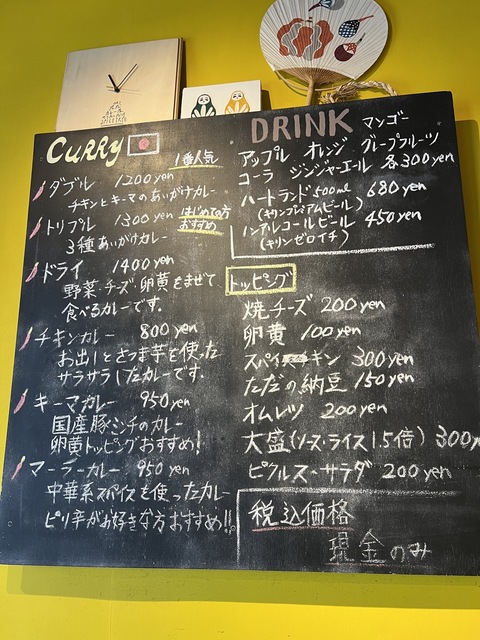 CURRY
1番人気
ダブル 1200yen
チキンとキーマのあいがけカレー
トリプル 1300yen はじめての方
おすすめ
3種あいがけカレー
ドライ 1400yen
野菜・チーズ・卵黄をまぜて
食べるカレーです。
チキンカレー 800yen
お出しとさつま芋を使った
サラサラしたカレーです。
キーマカレー 950yen
国産豚ミンチのカレー
卵黄トッピングおすすめ!
マーラーカレー 950yen
中華系スパイスを使ったカレー
ピリ辛がお好きな方おすすめ!!
DRINK マンゴー
アップル オレンジ グレープフルーツ
コーラ ジンジャーエール 各300yen
ハートランド500ml 680yen
(キリンプレミアムビール)
ノンアルコールビール 450yen
(キリンゼロイチ)
トッピング
焼チーズ 200yen
卵黄 100yen
スパイスチキン 300yen
ただの納豆 150yen
オムレツ 200yen
大盛(ソース・ライス1.5倍) 300y
ピクルス・サラダ 200yen
税込価格
現金のみ